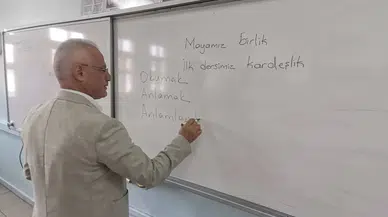 Mayamız Birlik
İlk dersimiz kardeşlik
Okumak
Anlamak